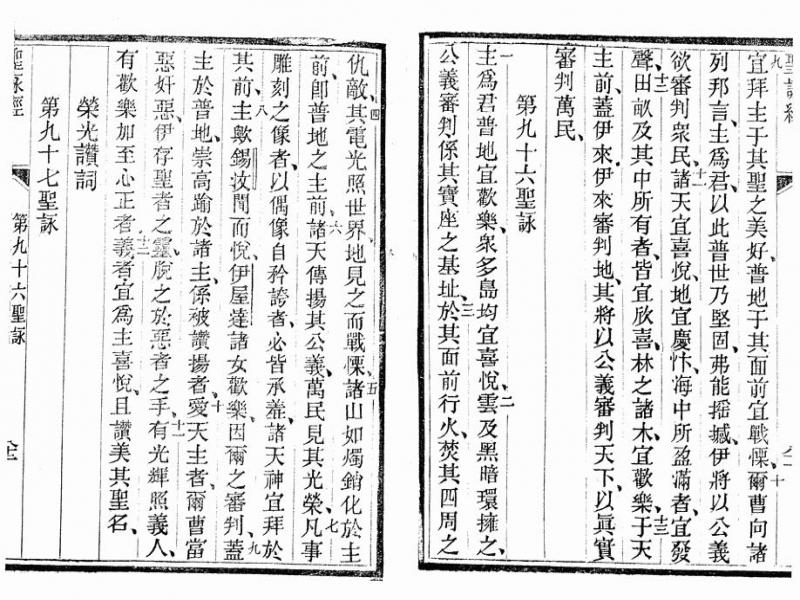 聖詠經
九
宜拜主于其聖之美好、普地于其面前宜戰慄、十爾曹向諸
列邦言、主爲君、以此普世乃堅固、弗能搖撼、伊將以公義
欲審判衆民、十一諸天宜喜悅、地宜慶忭、海中所盈滿者、宜發
聲、十二田畝及其中所有者、皆宜欣喜、林之諸木、宜歡樂、十三于天
主前、蓋伊來、伊來審判地、其將以公義審判天下、以眞實
審判萬民、
第九十六聖詠
一主爲君、普地宜歡樂、衆多島均宜喜悅、二雲及黑暗環擁之、
公義審判、係其寶座之基址、三於其面前行火、焚其四周之
仇敵、四其電光照世界、地見之而戰慄、五諸山如燭銷化於主
前、卽普地之主前、六諸天傳揚其公義、萬民見其光榮、七凡事
雕刻之像者、以偶像自矜誇者、必皆承羞、諸天神宜拜於
其前、八主歟、錫汝聞而悅、伊屋達諸女歡樂、因爾之審判、九蓋
主於普地、崇高踰於諸主、係被讚揚者、十愛天主者、爾曹當
惡奸惡、伊存聖者之靈、脫之於惡者之手、十一有光輝照義人、
有歡樂加至心正者、十二義者宜爲主喜悅、且讚美其聖名、
榮光讚詞
第九十七聖詠
聖詠經
第九十六聖詠